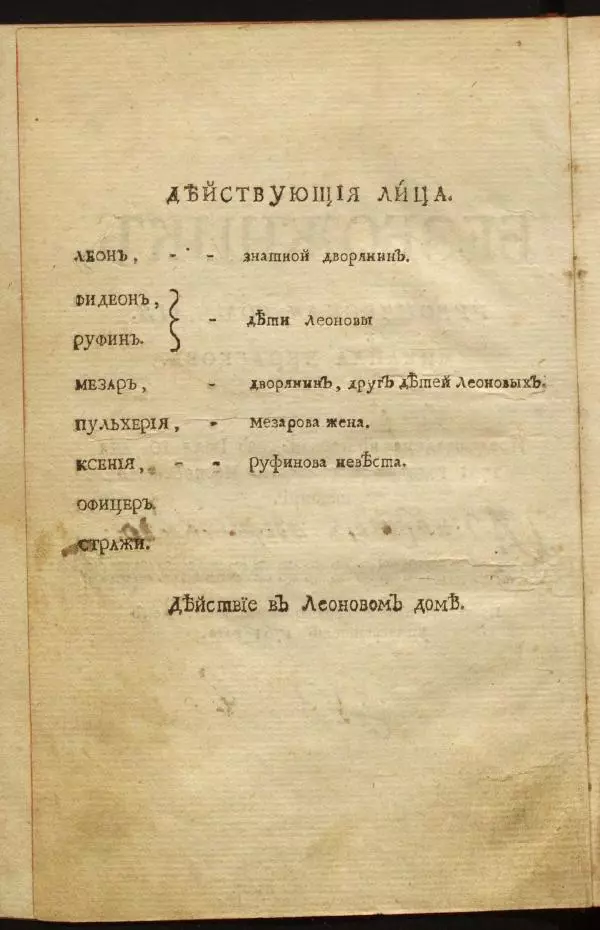 ДѢЙСТВУЮЩІЯ ЛИ́ЦА.
ЛЕОНЪ, - - знатной дворянинъ.
ФИДЕОНЪ,
} - дѣти Леоновы
РУФИНЪ.
МЕЗАРЪ, - дворянинъ, другъ дѣтей Леоновыхъ.
ПУЛЬХЕРІЯ, - Мезарова жена.
КСЕНІЯ, - - Руфинова невѣста.
ОФИЦЕРЪ.
СТРАЖИ.
Дѣйствїе въ Леоновомъ домѣ.